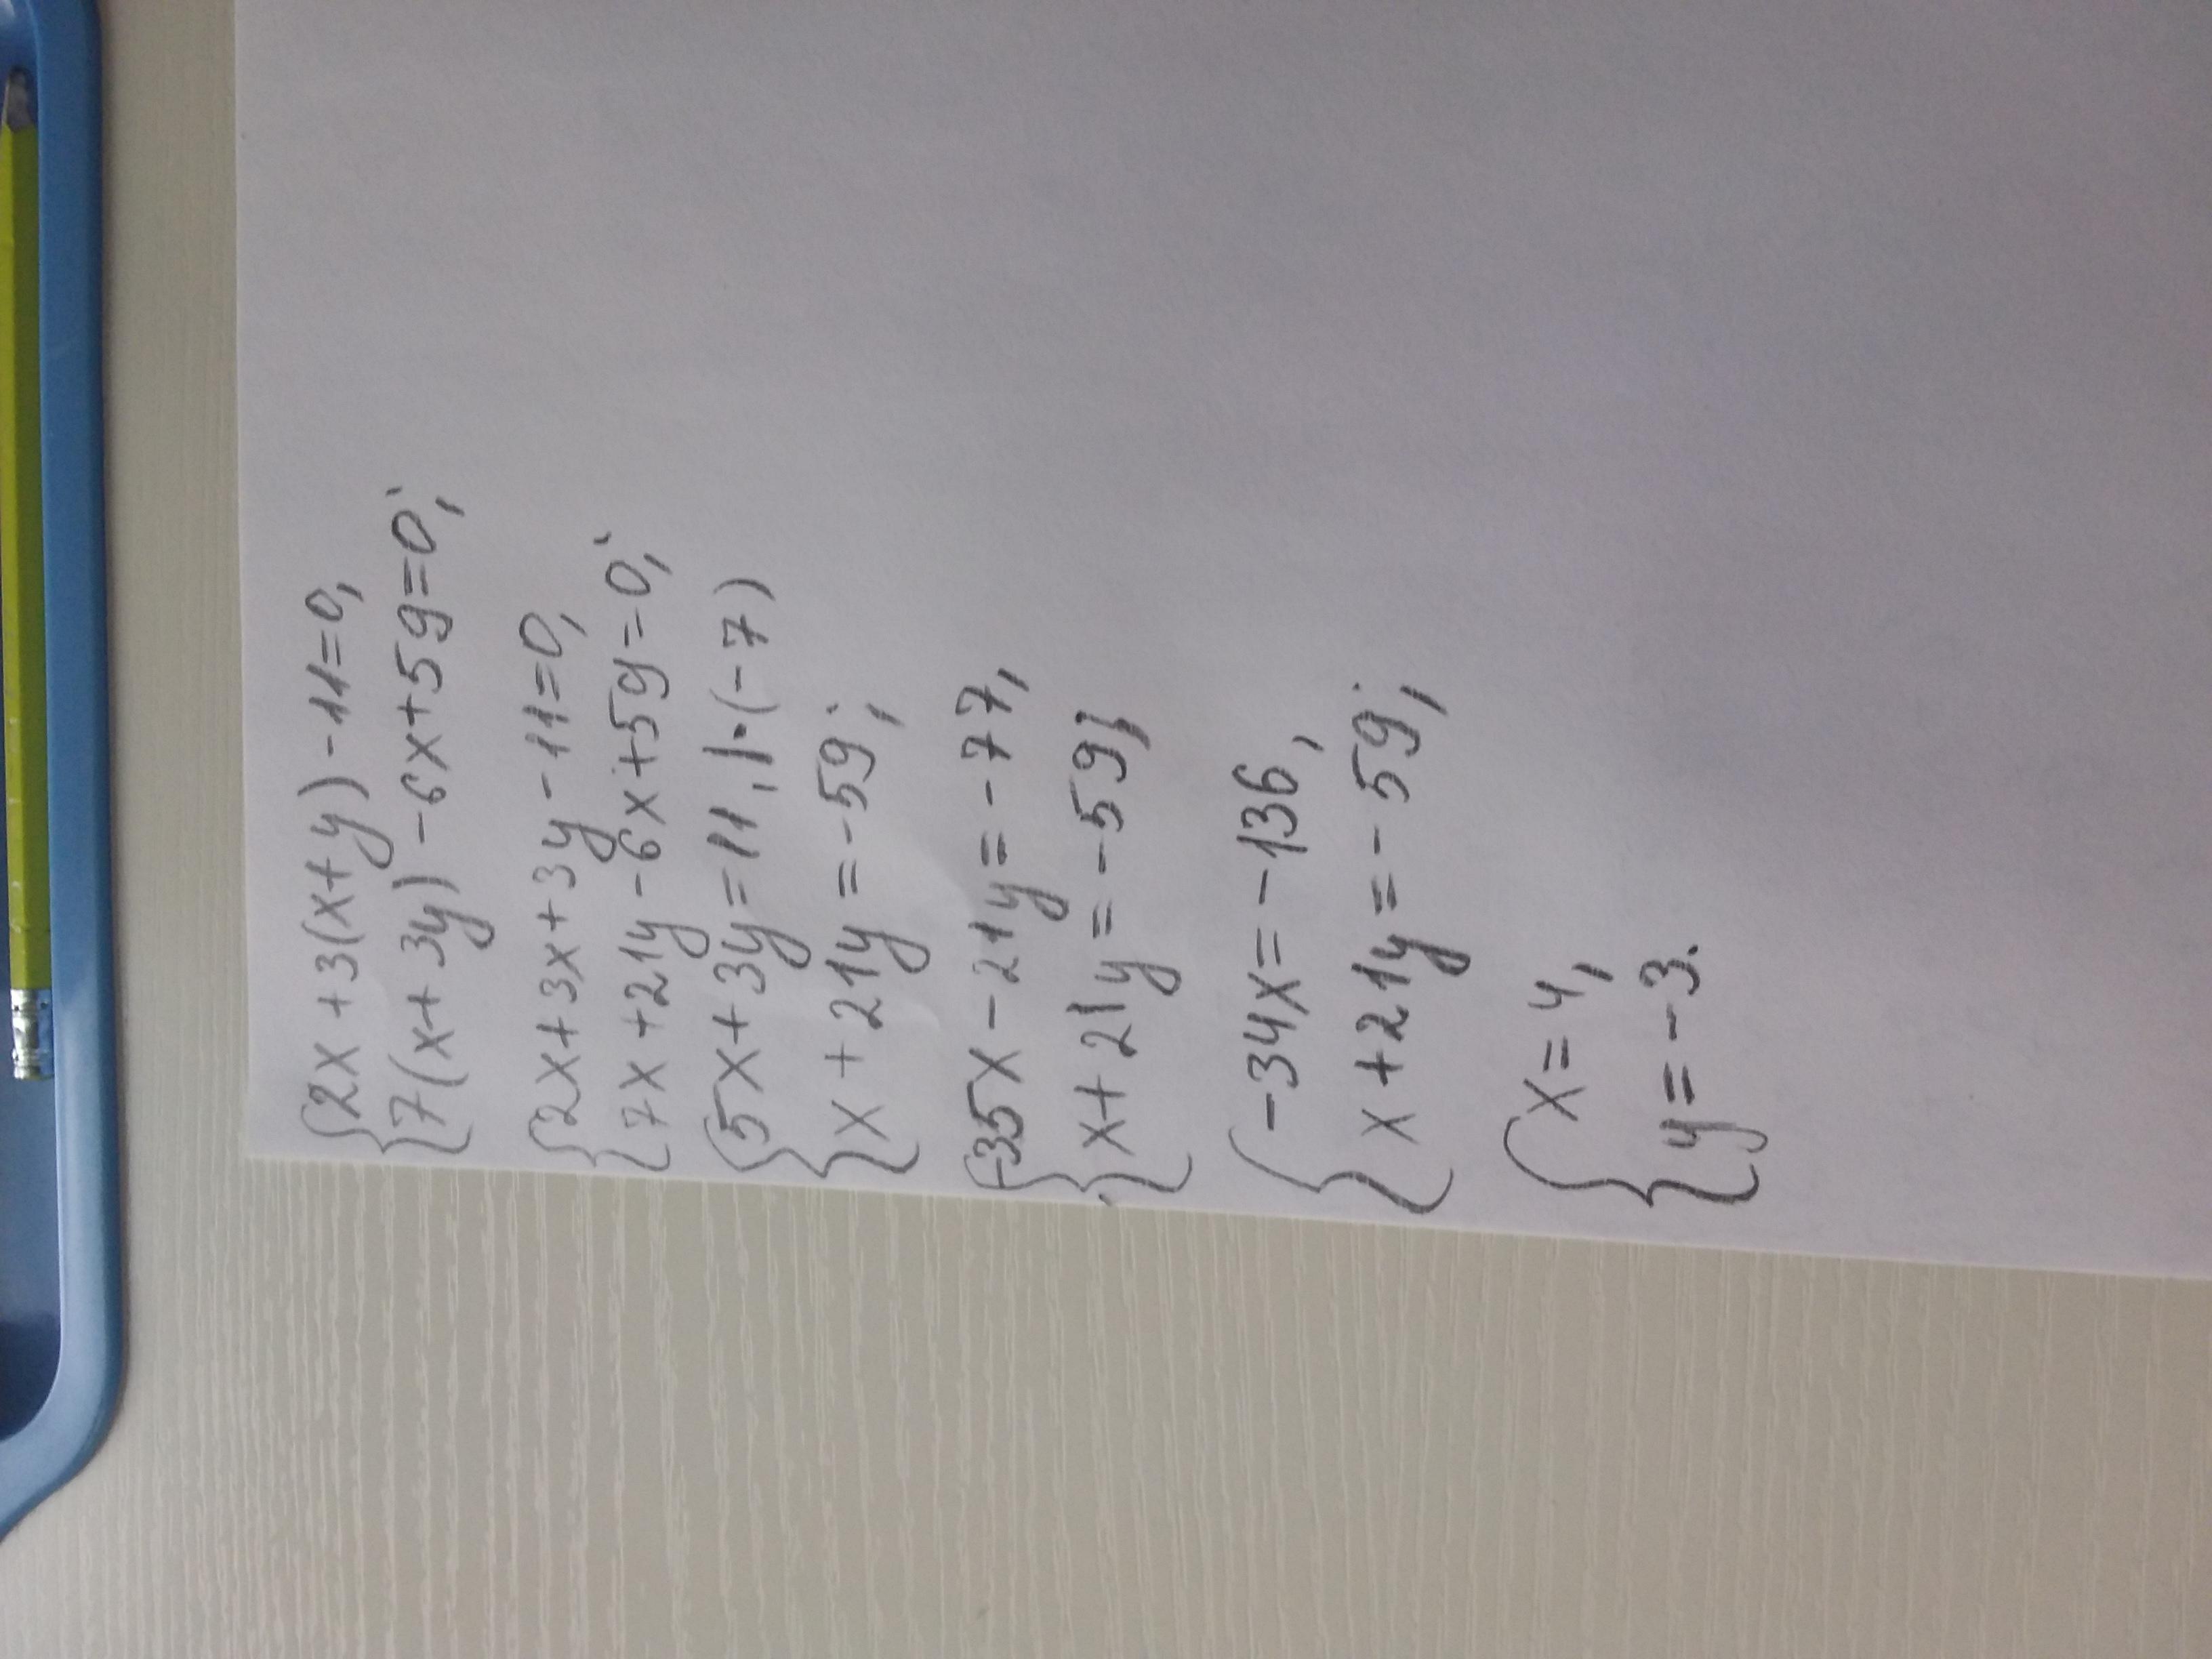 {2x+3(x+y)-11=0,
{7(x+3y)-6x+59=0;
{2x+3x+3y-11=0,
{7x+21y-6x+59=0;
{5x+3y=11,|·(-7)
{x+21y=-59;
{-35x-21y=-77,
{x+21y=-59;
{-34x=-136,
{x+21y=-59;
{x=4,
{y=-3.